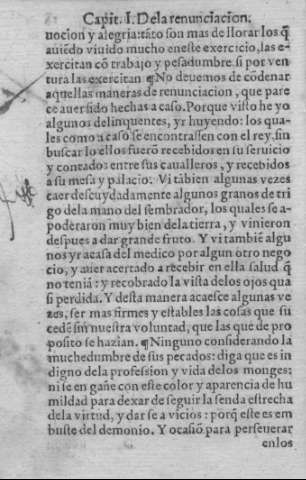 Capit. I. De la renunciacion.
uocion y alegria: tãto son mas de llorar los q̃
auiẽdo viuido mucho eneste exercicio, las e-
xercitan cõ trabajo y pesadumbre. si por ven
tura las exercitan ¶ No deuemos de cõdenar
aquellas maneras de renunciacion, que pare
ce auer sido hechas a caso. Porque visto he yo
algunos delinquentes, yr huyendo: los qua-
les como a caso se encontrassen con el rey, sin
buscar lo ellos fuerõ recebidos en su seruicio
y contados entre sus caualleros, y recebidos
a su mesa y palacio. Vi tãbien algunas vezes
caer descuydadamente algunos granos de tri
go dela mano del sembrador, los quales se a-
poderaron muy bien dela tierra, y vinieron
despues a dar grande fruto. Y vi tambiẽ algu
nos yr acasa del medico por algun otro nego
cio, y auer acertado a recebir en ella salud q̃
no teniã: y recobrado la vista delos ojos qua
si perdida. Y desta manera acaesce algunas ve
zes, ser mas firmes y estables las cosas que su
cedẽ sin nuestra voluntad, que las que de pro
posito se hazian. ¶ Ninguno considerando la
muchedumbre de sus pecados: diga que es in
digno dela profession y vida delos monges:
ni se engañe con este color y aparencia de hu
mildad para dexar de seguir la senda estrecha
dela virtud, y dar se a vicios: porq̃ este es em
buste del demonio. Y ocasiõ para perseuerar
enlos